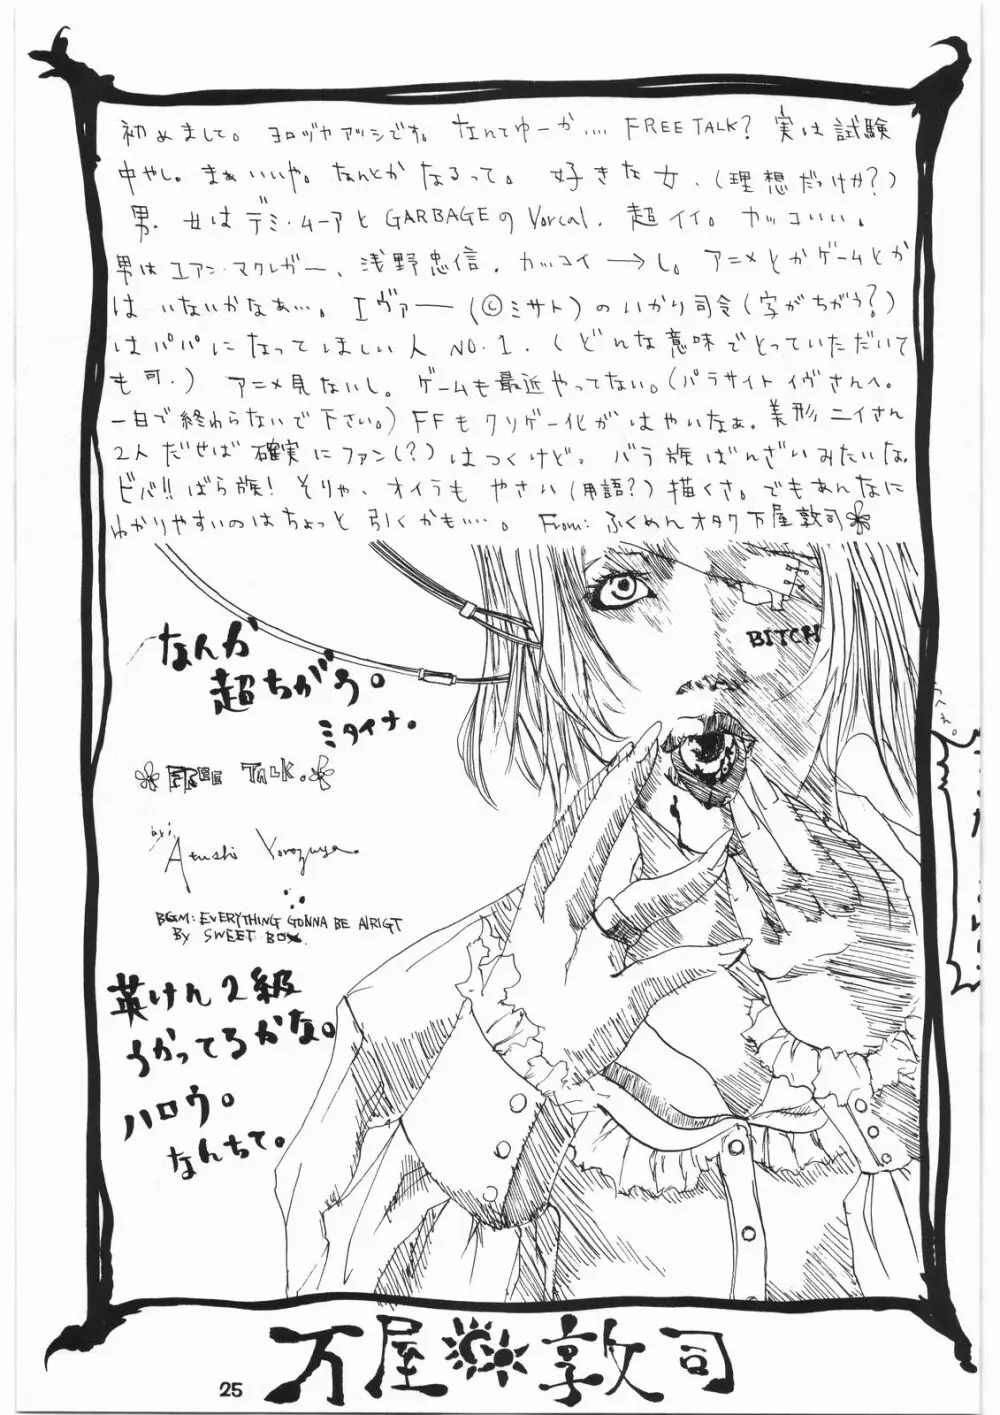 初めまして。ヨロヅヤアツシです。なんてゆーか.... FREE TALK? 実は試験
中やし。まぁいいや。なんとかなるって。好きな女.(理想だっけか?)
男. 女はデミ・ムーアとGARBAGEのVorcal. 超イイ。カッコいい。
男はユアン・マクレガー、浅野忠信. カッコイ→し。アニメとかゲームとか
はいないかなぁ…。エヴァー(©ミサト)のいかり司令(字がちがう?)
はパパになってほしい人NO.1.(どんな意味でとっていただいて
も可.) アニメ見ないし。ゲームも最近やってない。(パラサイトイヴさんへ。
一日で終わらないで下さい。) FFもクソゲー化がはやいなぁ。美形ニイさん
2人だせば確実にファン(?)はつくけど。バラ族ばんざいみたいな。
ビバ!!ばら族! そりゃ、オイラもやさい(用語?)描くさ。でもあんなに
わかりやすいのはちょっと引くかも….。From: ふくめんオタク万屋敦司
BITCH
なんか
超ちがう。
ミタイナ。
うへぇ。
FREE TALK.
Atushi Yorozuya.
BGM: EVERYTHING GONNA BE AlRIGT
BY SWEET BOX.
英けん2級
うかってるかな。
ハロウ。
なんちて。
万屋敦司
25